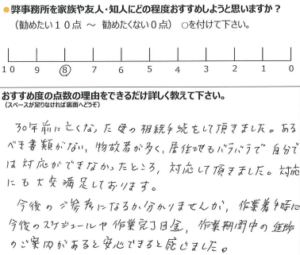 ●弊事務所を家族や友人・知人にどの程度おすすめしようと思いますか？
（勧めたい１０点 ～ 勧めたくない０点） ○を付けて下さい。
10 9 8 7 6 5 4 3 2 1 0
おすすめ度の点数の理由をできるだけ詳しく教えて下さい。
（スペースが足りなければ裏面へどうぞ）
30年前に亡くなった母の相続手続をして頂きました。ある
べき書類がない、相続者が多く、居住地もバラバラで自分で
は対応ができなかったところ、対応して頂きました。対応
にも大変満足しております。
今後のご参考になるか分かりませんが、作業着手時に
今後のスケジュールや作業完了日含、作業期間中の進捗
のご案内があると安心できると感じました。